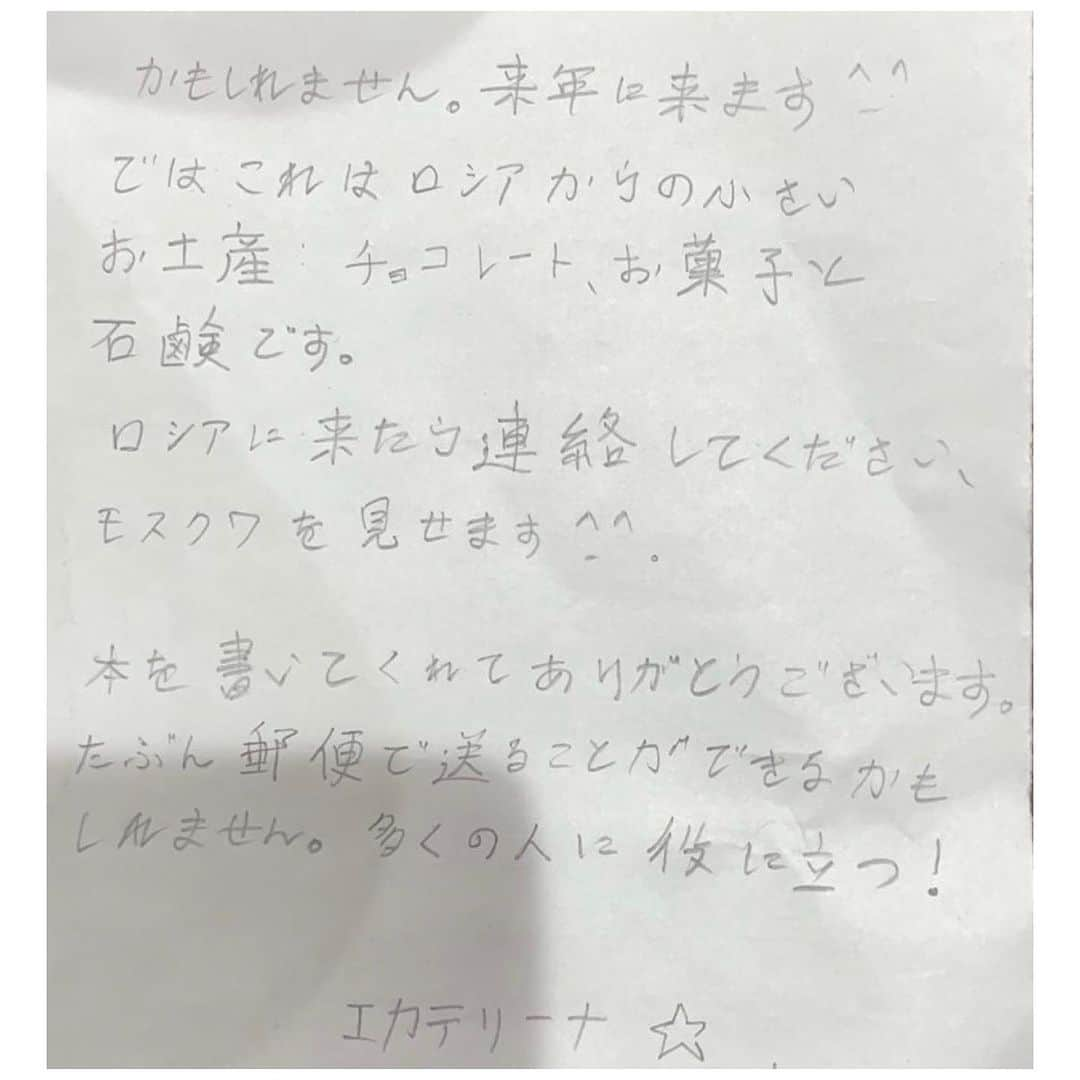 かもしれません。来年に来ます^_^
ではこれはロシアからの小さい
お土産: チョコレート、お菓子と
石鹸です。
ロシアに来たら連絡してください、
モスクワを見せます^_^.
本を書いてくれてありがとうございます。
たぶん郵便で送ることができるかも
しれません。多くの人に役に立つ!
エカテリーナ ☆